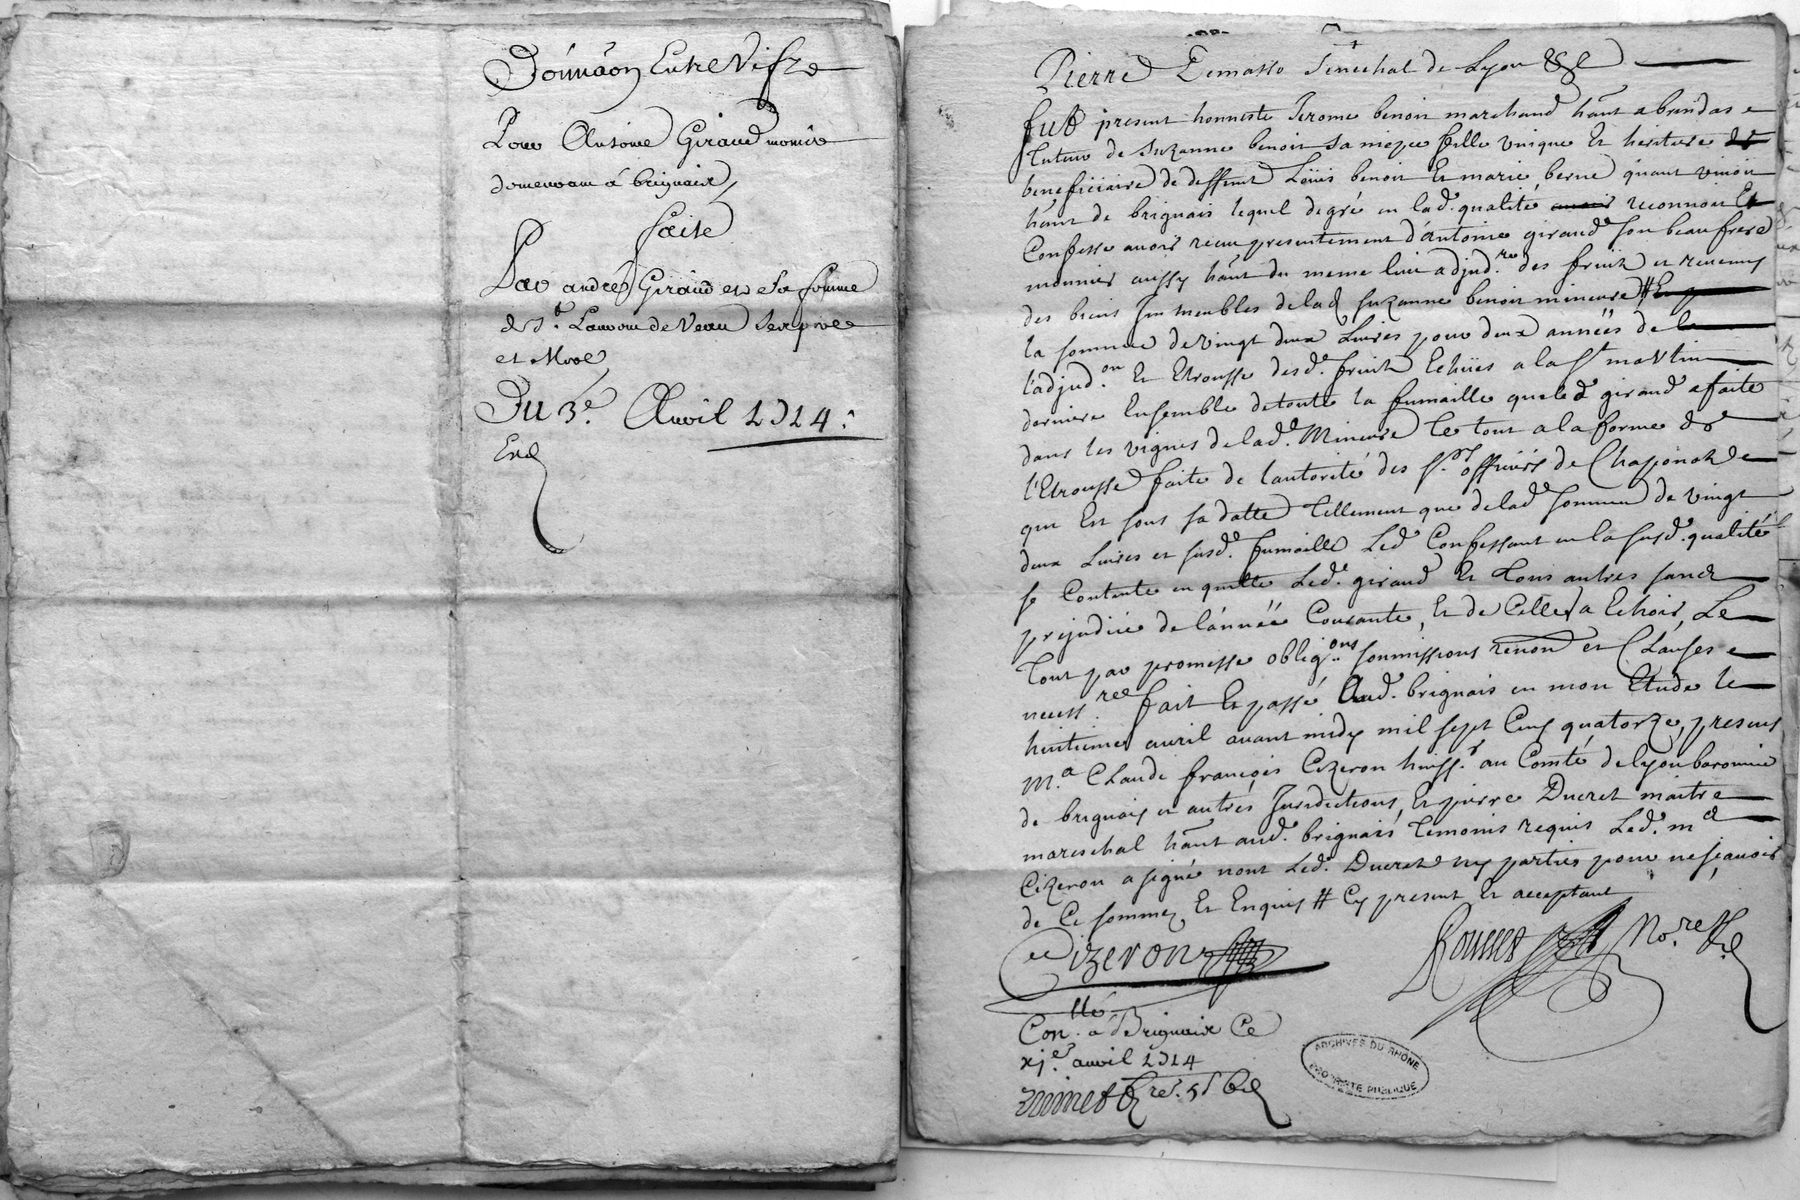 Donnâon Entre Vifze
Pour Antoine Giraud monier
demeurant á brignaix
faite
Par andré Giraud et sa femme
de St. Laurent de Vaux
et More
Du 3e. Auvil 1714:
Exd
Pierre Demasso Senechal de Lyon &c
fut present honneste Jerome benoin marchand hãnt a brindas
tuteur de Suzanne benoin sa niepce fille unique et heritiere de
beneficiaire de deffunt Loüis benoin et marie berne quant vivoit
hãnt de brignais lequel de gré en lad. qualité reconnoit Et
Confesse avoir receu presentement d'antoine giraud son beau frere
monnier aussy hãnt du meme lieu adjud.re des fruits et revenus
des biens Immeubles de lad Suzanne benoin mineure #
la somme de vingt deux Livres pour deux annéés de
l'adjud.on Et Etrousse desd. fruits Echües a la St martin
derniere Ensemble de toute la fumaille que led giraud a faite
dans les vignes de lad. Mineure Le tout a la forme de
l'Etrousse faite de l'autorité des Srs officiers de Chaponost
qui Est sous sa datte Tellement que de lad somme de vingt
deux Livres et susd. fumaille Led Confessant en la susd. qualité
se Contente en quitte Led. giraud Et Tous autres sans
prejudice de l'année Courante, Et de Celles a Echoir, Le
Tout par promesse oblig.ons soumissions renon et Clauses
necess.res fait Et passé Aud. brignais en mon Etude le
huitieme avril avant midy mil sept Cens quatorze, presens
M.e Claude françois Cizeron huiss.r au Comté de lyon baronnie
de brignais et autres Jurisdictions, Et pierre Ducret maitre
mareschal hãnt aud. brignais temoins requis Led. me
Cizeron a signé non Led. Ducret ny parties pour ne sçavoir
de Ce sommez Et Enquis # Cy present Et acceptant
Cizeron
No.re
Con.llé a Brignaix Ce
xj.e auvil 1714
ARCHIVES DU RHÔNE
PROPRIÉTÉ PUBLIQUE